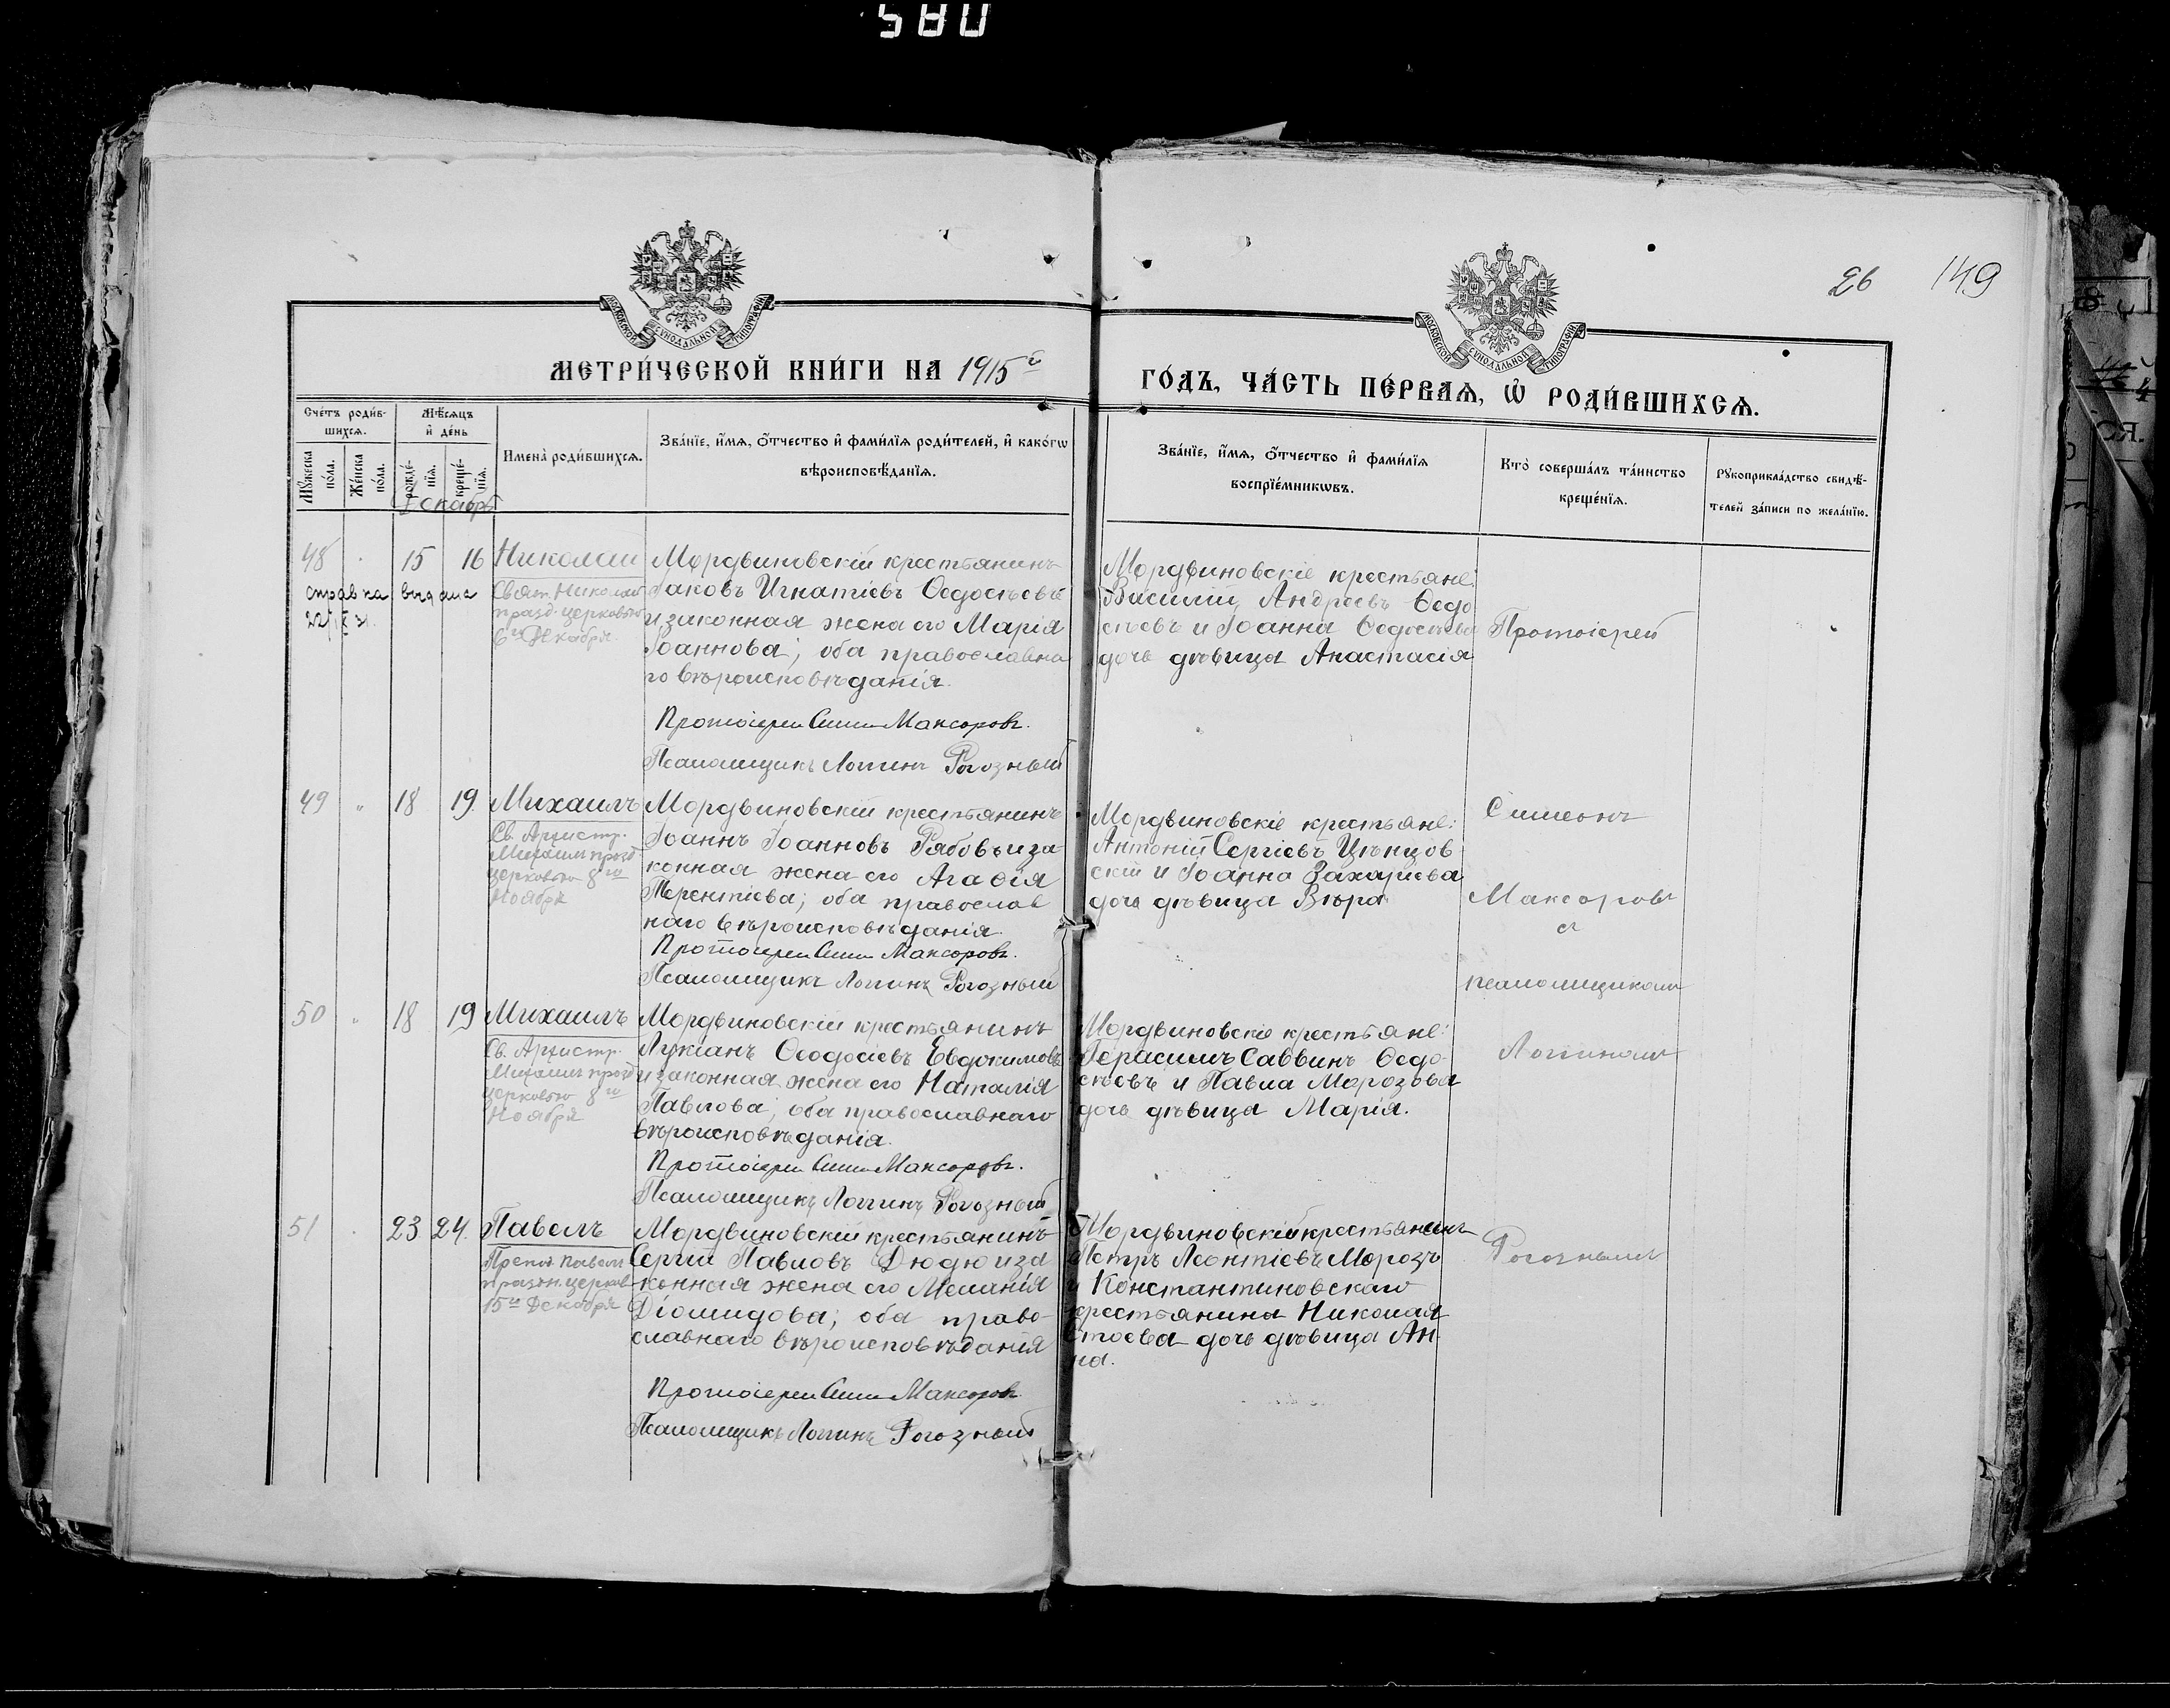 580
26 149
МОСКОВСКОЙ СѴНОДАЛЬНОЙ ТИПОГРАФІИ
МОСКОВСКОЙ СѴНОДАЛЬНОЙ ТИПОГРАФІИ
МЕТРИ́ЧЕСКОЙ КНИ́ГИ НА 1915й
ГО́ДЪ, ЧА́СТЬ ПЕ́РВАѦ, Ѡ҆ РОДИ́ВШИХСѦ.
Сче́тъ роди́в-
шихсѧ.
Мꙋ́жеска по́ла.
Же́нска по́ла.
Мѣ́сѧцъ
и҆ де́нь
рожде́-
нїѧ.
креще́-
нїѧ.
Декабрь
И҆мена̀ роди́вшихсѧ.
Зва́нїе, и҆́мѧ, ѻ҆́тчество и҆ фами́лїѧ роди́телей, и҆ како́гѡ
вѣроисповѣ́данїѧ.
Зва́нїе, и҆́мѧ, ѻ҆́тчество и҆ фами́лїѧ
воспрїе́мникѡвъ.
Кто̀ соверша́лъ та́инство
креще́нїѧ.
Рꙋкоприкла́дство свидѣ́-
телей за́писи по жела́нїю.
48 " 15 16 Николай
справка выдана
Свят. Николай
празд. церковью
6го Декабря
Мордвиновскій крестьянинъ
Іаковъ Игнатіевъ Ѳедосѣевъ
и законная жена его Марія
Іоаннова; оба православна
го вѣроисповѣданія.
Протоіерей Симеонъ Максоровъ.
Псаломщикъ Логгинъ Рогозный
Мордвиновскіе крестьяне:
Василій Андреевъ Ѳедо
сѣевъ и Іоанна Ѳедосѣева
дочь дѣвица Анастасія
Протоіерей
49 " 18 19. Михаилъ
Св. Архистр.
Михаилъ празд
церковью 8го
Ноября
Мордвиновскій крестьянинъ
Іоаннъ Іоанновъ Рябовъ и за
конная жена его Агаѳія
Терентіева; оба православ
наго вѣроисповѣданія.
Протоіерей Симеонъ Максоровъ.
Псаломщикъ Логгинъ Рогозный
Мордвиновскіе крестьяне:
Антоній Сергіевъ Цѣнцов
скій и Іоанна Захаріева
дочь дѣвица Вѣра
Симеонъ
Максоровъ
съ
псаломщикомъ
50 " 18 19 Михаилъ
Св. Архистр.
Михаилъ празд
церковью 8го
Ноября
Мордвиновскій крестьянинъ
Лукіанъ Ѳеодосіевъ Евдокимовъ
и законная жена его Наталія
Павлова; оба православнаго
вѣроисповѣданія.
Протоіерей Симеонъ Максоровъ.
Псаломщикъ Логгинъ Рогозный
Мордвиновскіе крестьяне:
Герасимъ Саввинъ Ѳедо
сѣевъ и Павла Морозова
дочь дѣвица Марія.
Логгиномъ
51 " 23 24. Павелъ
Препод. Павелъ
празд. церков
15го Декабря
Мордвиновскій крестьянинъ
Сергій Павловъ Дюдю и за
конная жена его Меланія
Діомидова; оба право-
славнаго вѣроисповѣданія
Протоіерей Симеонъ Максоровъ
Псаломщикъ Логгинъ Рогозный
Мордвиновскій крестьянинъ
Петръ Леонтіевъ Морозъ
и Константиновскаго
крестьянина Николая
Стоева дочь дѣвица Ан-
на.
Рогознымъ